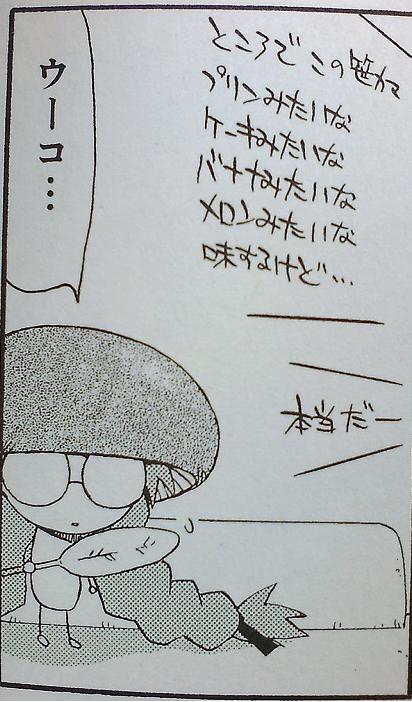 ところで この 笹カマ
プリンみたいな
ケーキみたいな
バナナみたいな
メロンみたいな
味するけど…
本当だー
ウーコ…